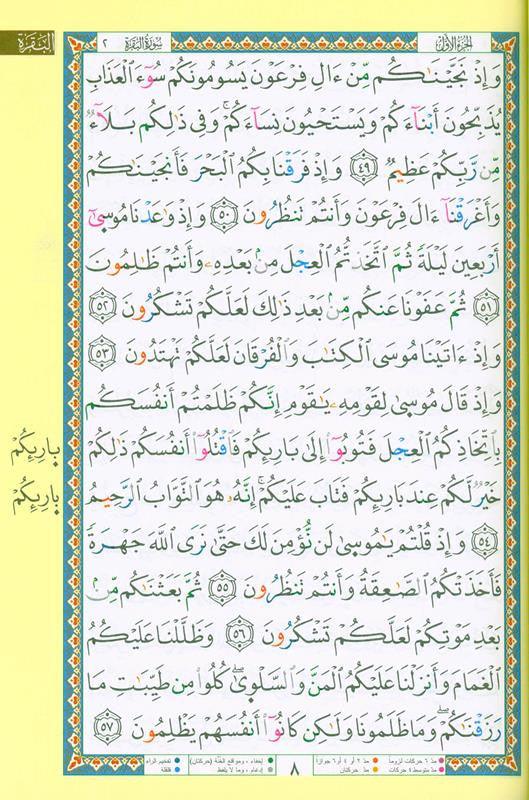 الجزء الأول
سورة البقرة
٢
البقرة
وَإِذْ نَجَّيْنَٰكُم مِّنْ ءَالِ فِرْعَوْنَ يَسُومُونَكُمْ سُوٓءَ ٱلْعَذَابِ
يُذَبِّحُونَ أَبْنَآءَكُمْ وَيَسْتَحْيُونَ نِسَآءَكُمْ ۚ وَفِى ذَٰلِكُم بَلَآءٌ
مِّن رَّبِّكُمْ عَظِيمٌ ٤٩ وَإِذْ فَرَقْنَا بِكُمُ ٱلْبَحْرَ فَأَنجَيْنَٰكُمْ
وَأَغْرَقْنَآ ءَالَ فِرْعَوْنَ وَأَنتُمْ تَنظُرُونَ ٥٠ وَإِذْ وَٰعَدْنَا مُوسَىٰٓ
أَرْبَعِينَ لَيْلَةً ثُمَّ ٱتَّخَذتُّمُ ٱلْعِجْلَ مِنۢ بَعْدِهِۦ وَأَنتُمْ ظَٰلِمُونَ
٥١ ثُمَّ عَفَوْنَا عَنكُم مِّنۢ بَعْدِ ذَٰلِكَ لَعَلَّكُمْ تَشْكُرُونَ ٥٢
وَإِذْ ءَاتَيْنَا مُوسَى ٱلْكِتَٰبَ وَٱلْفُرْقَانَ لَعَلَّكُمْ تَهْتَدُونَ ٥٣
وَإِذْ قَالَ مُوسَىٰ لِقَوْمِهِۦ يَٰقَوْمِ إِنَّكُمْ ظَلَمْتُمْ أَنفُسَكُم
بِٱتِّخَاذِكُمُ ٱلْعِجْلَ فَتُوبُوٓا۟ إِلَىٰ بَارِيِكُمْ فَٱقْتُلُوٓا۟ أَنفُسَكُمْ ذَٰلِكُمْ
بارِيِكُمْ
خَيْرٌ لَّكُمْ عِندَ بَارِيِكُمْ فَتَابَ عَلَيْكُمْ ۚ إِنَّهُۥ هُوَ ٱلتَّوَّابُ ٱلرَّحِيمُ
بارِيِكُمْ
٥٤ وَإِذْ قُلْتُمْ يَٰمُوسَىٰ لَن نُّؤْمِنَ لَكَ حَتَّىٰ نَرَى ٱللَّهَ جَهْرَةً
فَأَخَذَتْكُمُ ٱلصَّٰعِقَةُ وَأَنتُمْ تَنظُرُونَ ٥٥ ثُمَّ بَعَثْنَٰكُم مِّنۢ
بَعْدِ مَوْتِكُمْ لَعَلَّكُمْ تَشْكُرُونَ ٥٦ وَظَلَّلْنَا عَلَيْكُمُ
ٱلْغَمَامَ وَأَنزَلْنَا عَلَيْكُمُ ٱلْمَنَّ وَٱلسَّلْوَىٰ ۖ كُلُوا۟ مِن طَيِّبَٰتِ مَا
رَزَقْنَٰكُمْ ۖ وَمَا ظَلَمُونَا وَلَٰكِن كَانُوٓا۟ أَنفُسَهُمْ يَظْلِمُونَ ٥٧
مدّ ٦ حركات لزوماً مدّ ٢ أو ٤ أو ٦ جوازاً إخفاء، ومواقع الغُنَّة (حركتان) تفخيم الراء
مدّ متوسط ٤ حركات مدّ حركتان إدغام، وما لا يُلفَظ قلقلة
٨